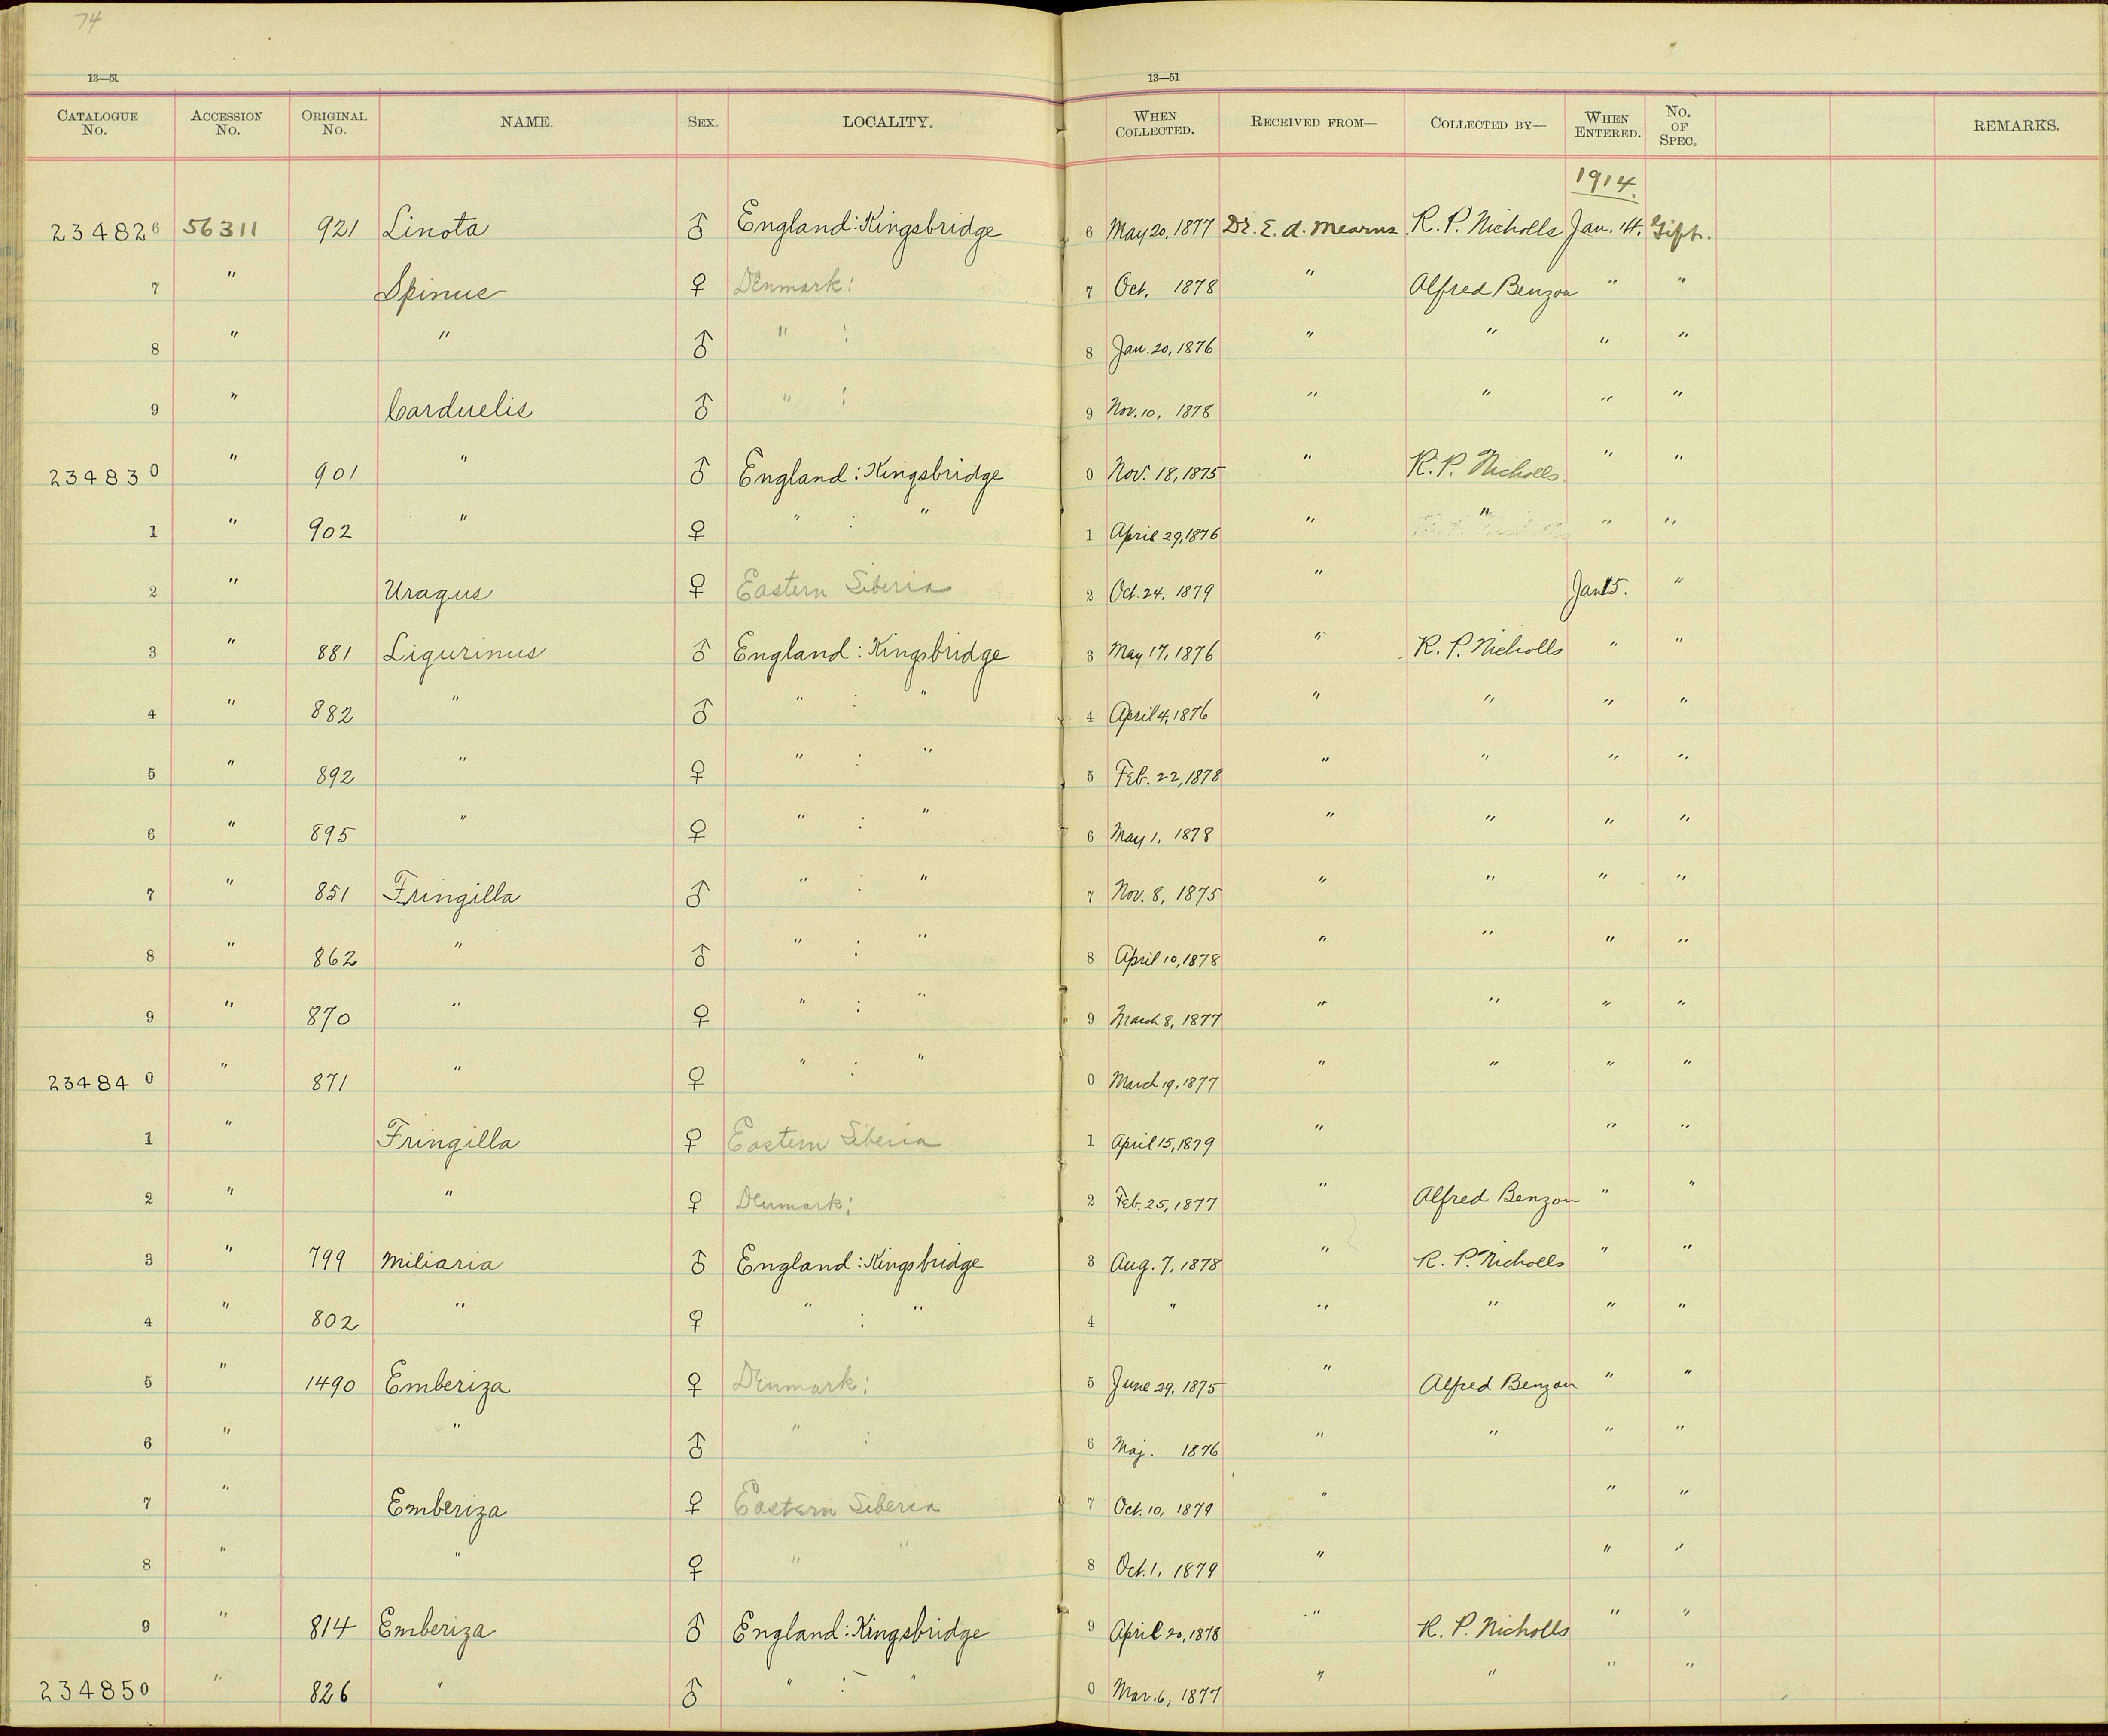 74
13—51
13—51
CATALOGUE No. ACCESSION No. ORIGINAL No. NAME. SEX. LOCALITY. WHEN COLLECTED. RECEIVED FROM— COLLECTED BY— WHEN ENTERED. No. OF SPEC. REMARKS.
1914.
234826 56311 921 Linota ♂ England: Kingsbridge 6 May 20, 1877 Dr. E. A. Mearns R. P. Nicholls Jan. 14. Gift.
7 " Spinus ♀ Denmark: 7 Oct. 1878 " Alfred Benzon " "
8 " " ♂ " : 8 Jan. 20, 1876 " " " "
9 " Carduelis ♂ " : 9 Nov. 10, 1878 " " " "
234830 " 901 " ♂ England: Kingsbridge 0 Nov. 18, 1875 " R. P. Nicholls. " "
1 " 902 " ♀ " : " 1 April 29, 1876 " " " "
2 " Uragus ♀ Eastern Siberia 2 Oct. 24, 1879 " Jan 15. "
3 " 881 Ligurinus ♂ England: Kingsbridge 3 May 17, 1876 " R. P. Nicholls " "
4 " 882 " ♂ " : " 4 April 4, 1876 " " " "
5 " 892 " ♀ " : " 5 Feb. 22, 1878 " " " "
6 " 895 " ♀ " : " 6 May 1, 1878 " " " "
7 " 851 Fringilla ♂ " : " 7 Nov. 8, 1875 " " " "
8 " 862 " ♂ " : " 8 April 10, 1878 " " " "
9 " 870 " ♀ " : " 9 March 8, 1877 " " " "
234840 " 871 " ♀ " : " 0 March 19, 1877 " " " "
1 " Fringilla ♀ Eastern Siberia 1 April 15, 1879 " " "
2 " " ♀ Denmark: 2 Feb. 25, 1877 " Alfred Benzon " "
3 " 799 Miliaria ♂ England: Kingsbridge 3 Aug. 7, 1878 " R. P. Nicholls " "
4 " 802 " ♀ " : " 4 " " " " "
5 " 1490 Emberiza ♀ Denmark: 5 June 29, 1875 " Alfred Benzon " "
6 " " ♂ " : 6 Maj. 1876 " " " "
7 " Emberiza ♀ Eastern Siberia 7 Oct. 10, 1879 " " "
8 " " ♀ " " 8 Oct. 1, 1879 " " "
9 " 814 Emberiza ♂ England: Kingsbridge 9 April 20, 1878 " R. P. Nicholls " "
234850 " 826 " ♂ " : " 0 Mar. 6, 1877 " " " "